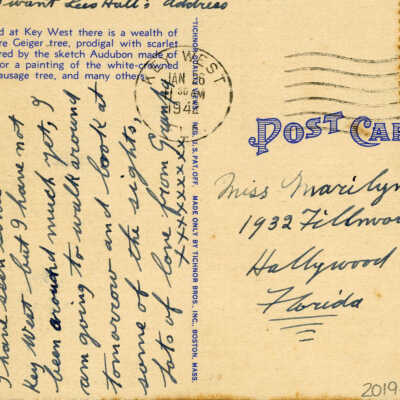 want Lees Hall's address
d at Key West there is a wealth of
re Geiger tree, prodigal with scarlet
ered by the sketch Audubon made of
or a painting of the white-crowned
ausage tree, and many others.
I have seen some
Key West but I have not
been around much yet, I
am going to walk around
tomorrow and look at
some of the sights,
lots of love from Granny
xxxxxxxx
TICHNOR QUALITY VIEWS, REG. U.S. PAT. OFF. MADE ONLY BY TICHNOR BROS. INC., BOSTON, MASS.
KEY WEST
JAN 26
PM
194
POST CA
Miss Marilyn
1932 Fillmo
Hollywood
Florida
2019